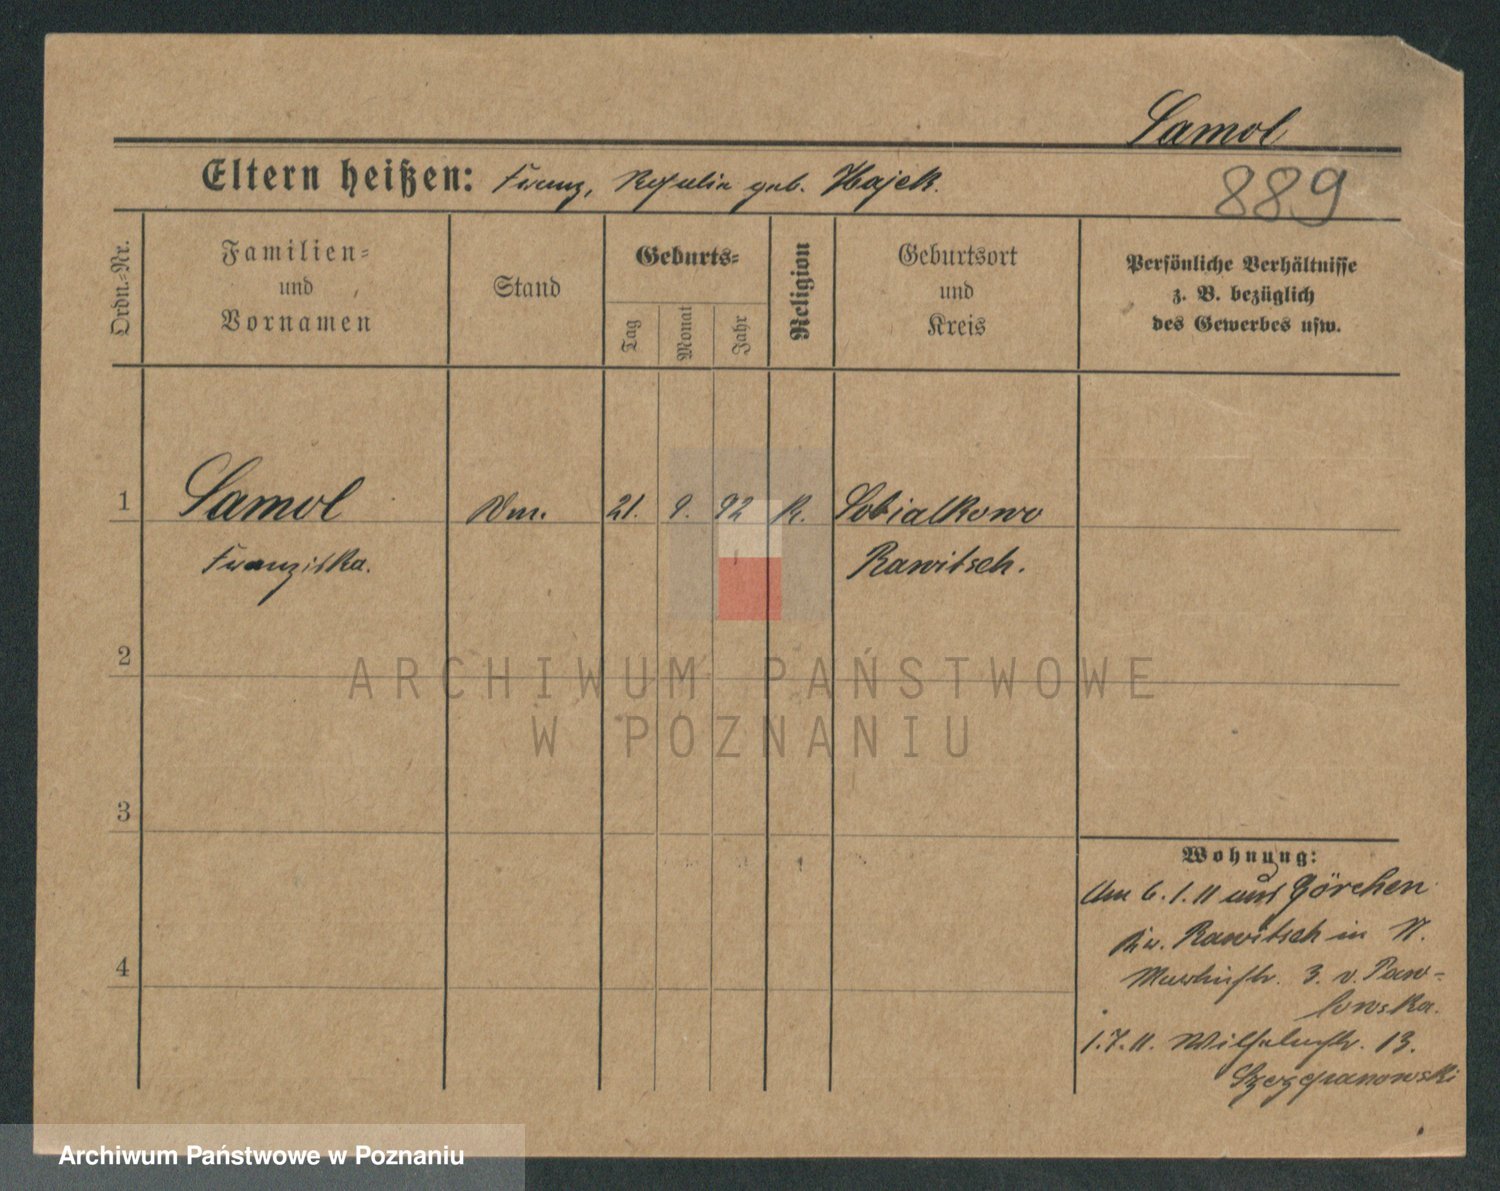 Samol
Eltern heißen: Franz, geb. Hajek.
889
Ordn.-Nr.
Familien-
und
Vornamen
Stand
Geburts-
Tag
Monat
Jahr
Religion
Geburtsort
und
Kreis
Persönliche Verhältnisse
z. B. bezüglich
des Gewerbes usw.
1 Samol 21. 9. 92 K. Sobialkowo
Franziska. Rawitsch.
2
3
4
Wohnung:
Am 6.1.11 aus Görchen
Rawitsch in
3. v. Paw-
lowska.
1.7.11. Wilhelmstr. 13.
Szczepanowski
ARCHIWUM PAŃSTWOWE
W POZNANIU
Archiwum Państwowe w Poznaniu